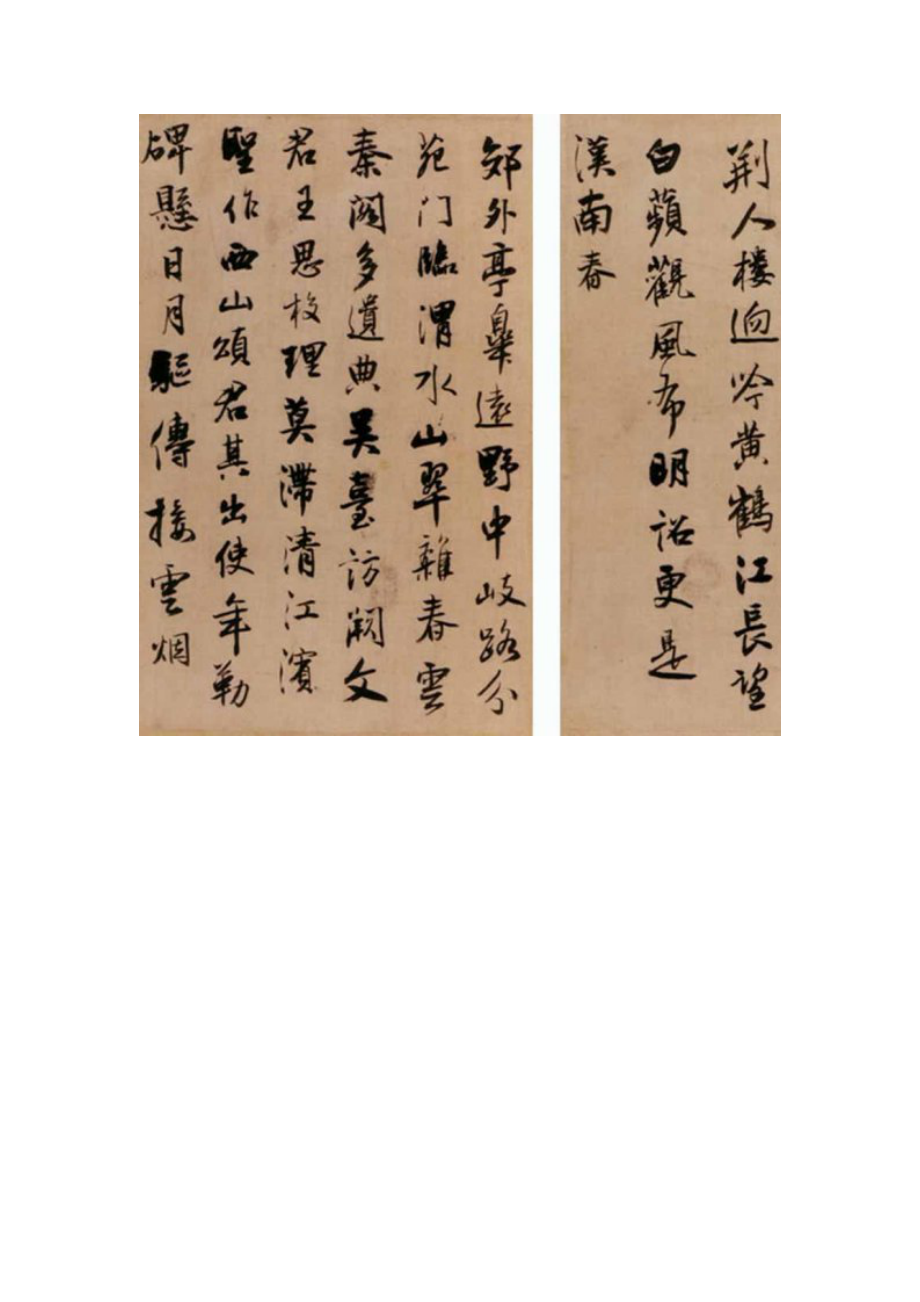 荆人樓迥吟黄鶴江長望
白蘋觀風布明詔更是
漢南春
郊外亭皐遠野中岐路分
苑门臨渭水山翠雜春雲
秦閣多遺典吴臺訪闕文
君王思校理莫滯清江濱
聖作西山頌君其出使年勒
碑懸日月驅傳接雲烟